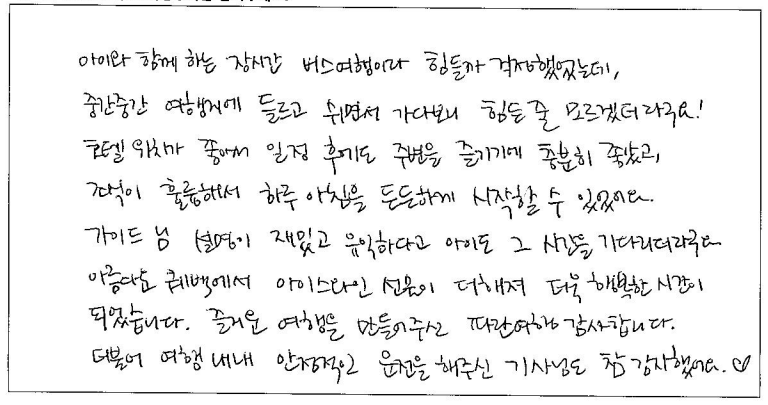 아이와 함께 하는 장시간 버스여행이라 힘들까 걱정했었는데,
중간중간 여행지에 들르고 쉬면서 가다보니 힘든 줄 모르겠더라구요!
호텔 위치가 좋아서 일정 후에도 주변을 즐기기에 충분히 좋았고,
조식이 훌륭해서 하루 아침을 든든하게 시작할 수 있었어요.
가이드 님 설명이 재밌고 유익하다고 아이도 그 시간을 기다리더라구요
아름다운 퀘벡에서 아이스와인 선물이 더해져 더욱 행복한 시간이
되었습니다. 즐거운 여행을 만들어주신 파란여행 감사합니다.
더불어 여행 내내 안정적인 운전을 해주신 기사님도 참 감사했어요.♡